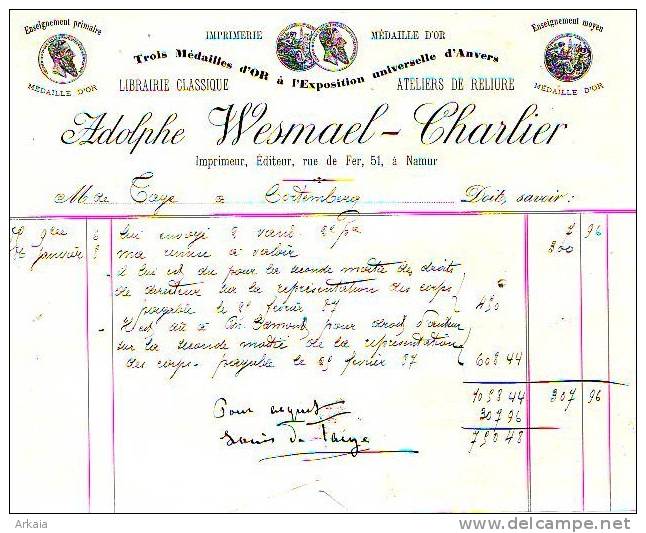 Enseignement primaire
MÉDAILLE D'OR
IMPRIMERIE MÉDAILLE D'OR
Enseignement moyen
MÉDAILLE D'OR
Trois Médailles d'OR à l'Exposition universelle d'Anvers
LIBRAIRIE CLASSIQUE ATELIERS DE RELIURE
Adolphe Wesmael-Charlier
Imprimeur, Éditeur, rue de Fer, 51, à Namur
M de à Cortemberg Doit, savoir:
9bre 6 lui envoyé 2 96
janvier ma remise à valoir 300
il lui est du pour la seconde moitié des droits
de directeur sur la représentation des corps
payable le février 97
Il est dû à pour droit d'auteur
sur la seconde moitié de la représentation
des corps payable le février 97 608 44
1098 44 307 96
307 96
790 48
Pour acquit
Louis de
Arkaia
www.delcampe.net